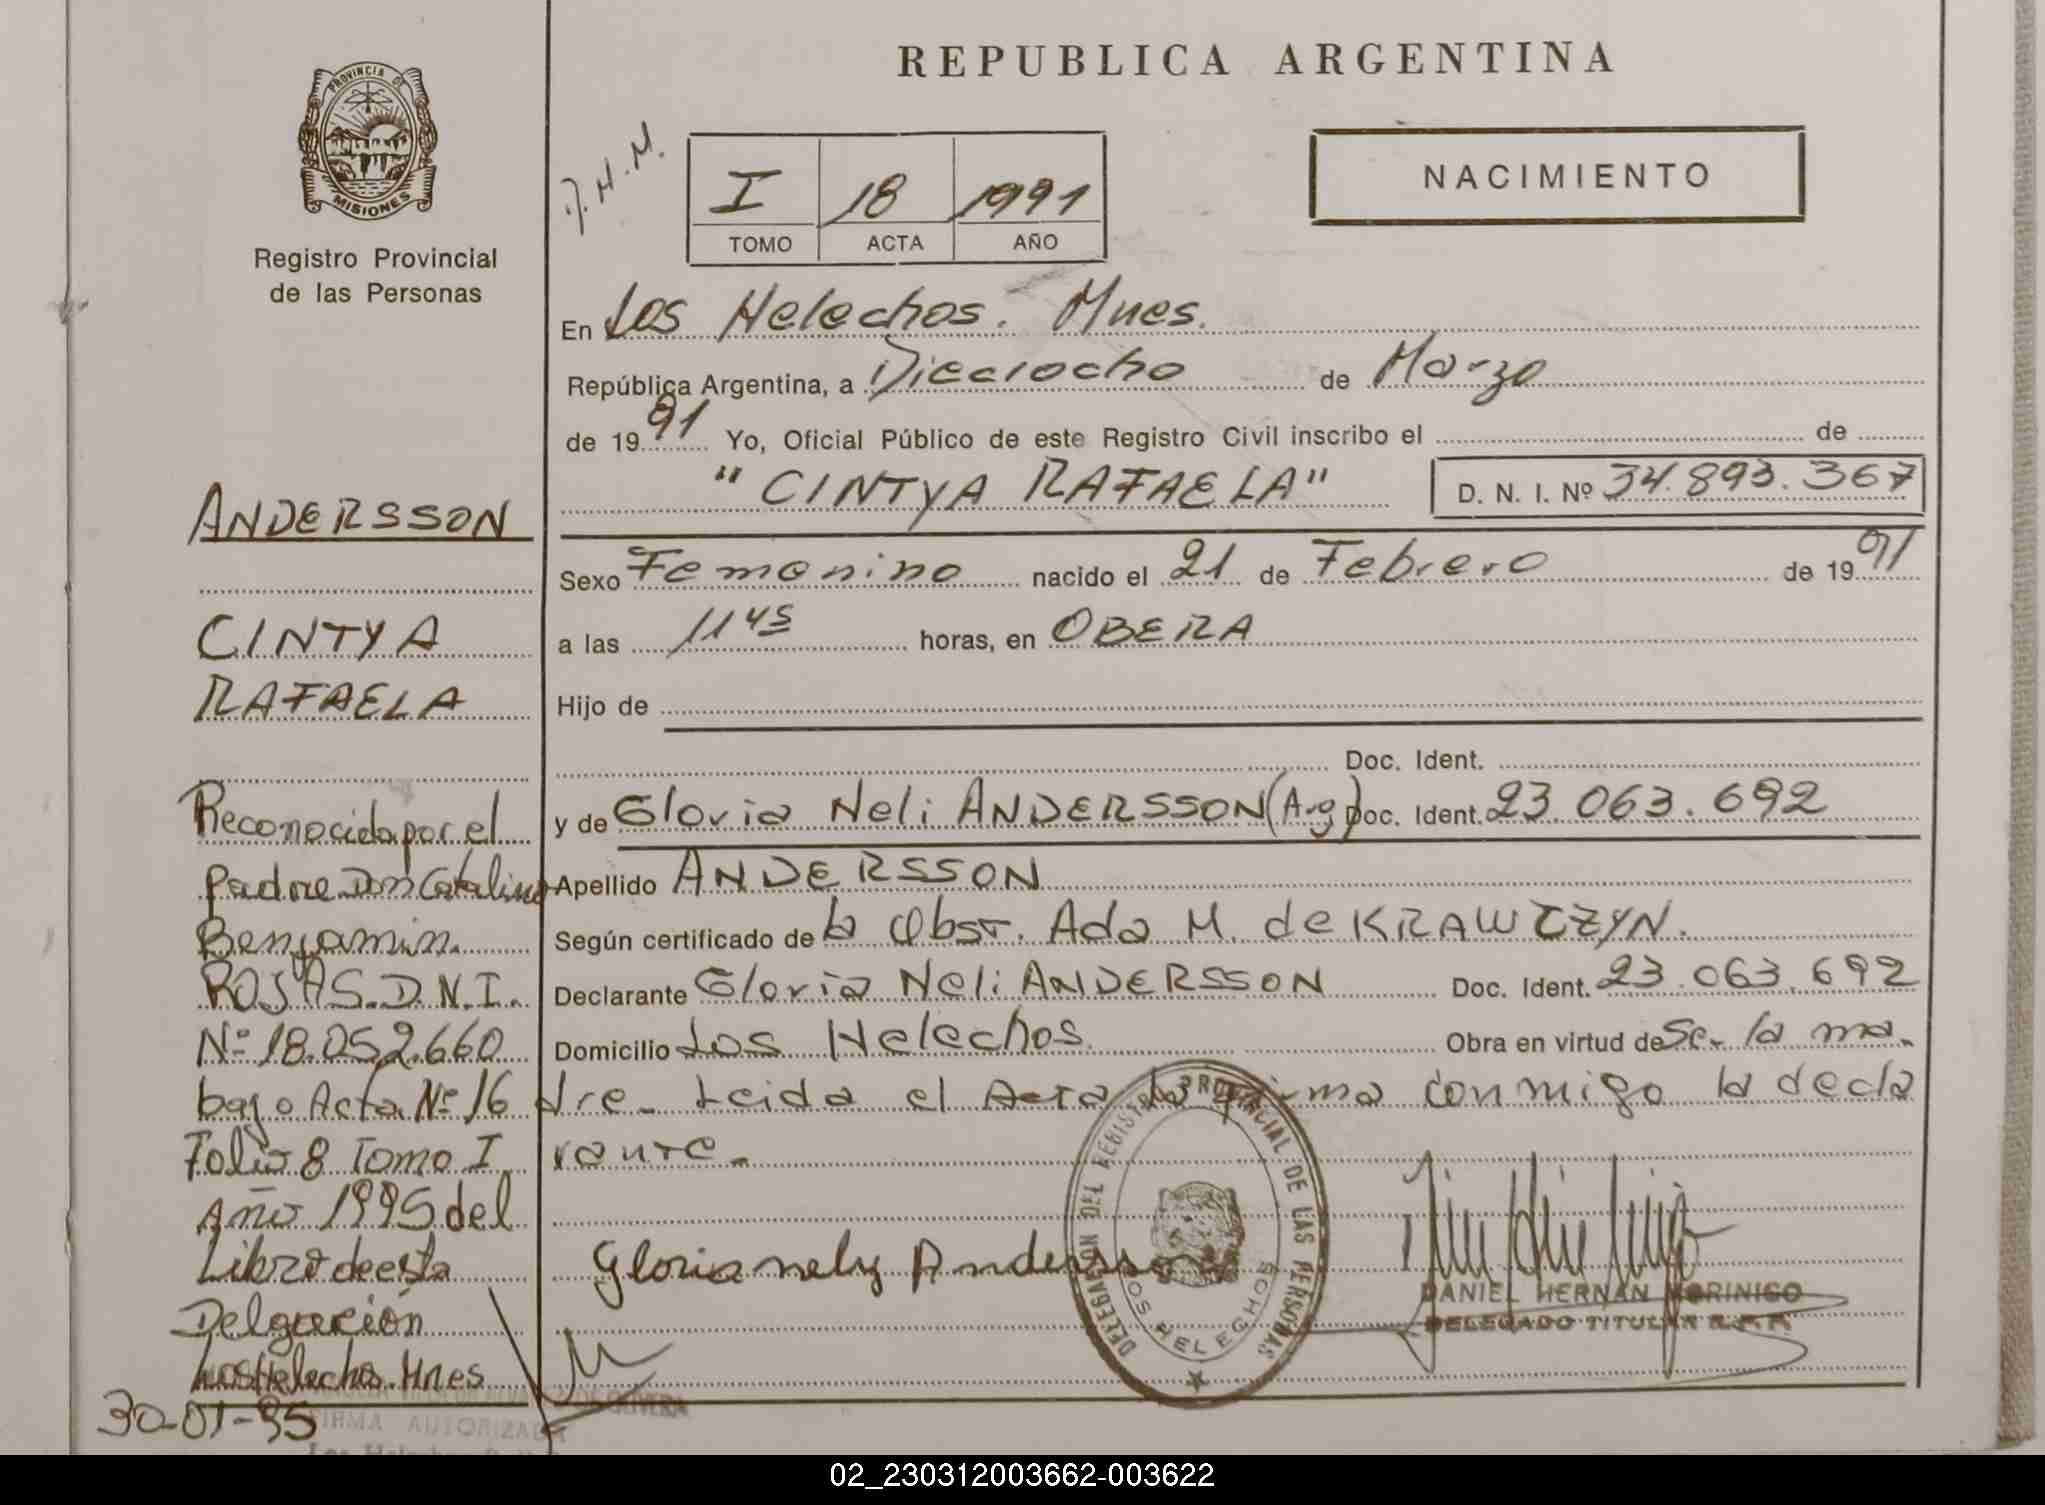 REPUBLICA ARGENTINA
PROVINCIA DE
MISIONES
Registro Provincial
de las Personas
J.H.M.
I 18 1991
TOMO ACTA AÑO
NACIMIENTO
En Los Helechos. Mnes.
República Argentina, a Dieciocho de Marzo
de 1991 Yo, Oficial Público de este Registro Civil inscribo el de
"CINTYA RAFAELA" D. N. I. Nº 34.893.367
Sexo Femenino nacido el 21 de Febrero de 1991
a las 11 45 horas, en OBERA
Hijo de
Doc. Ident.
y de Gloria Neli ANDERSSON (Arg) Doc. Ident. 23.063.692
Apellido ANDERSSON
Según certificado de la Obst. Ada M. de KRAWCZYN.
Declarante Gloria Neli ANDERSSON Doc. Ident. 23.063.692
Domicilio Los Helechos. Obra en virtud de Se. la ma.
dre. Leida el Acta la firma conmigo la decla
rante.
Gloria nely Andersson
DELEGACION DEL REGISTRO PROVINCIAL DE LAS PERSONAS
LOS HELECHOS
DANIEL HERNAN MORINIGO
DELEGADO TITULAR R.P.P.
ANDERSSON
CINTYA
RAFAELA
Reconocida por el
padre Don Catalino
Benjamin.
ROJAS. D.N.I.
Nº 18.052.660
bajo Acta Nº 16
Folio 8 Tomo I
Año 1995 del
Libro de esta
Delgación
Los Helechos. Mnes
30-01-95
FIRMA AUTORIZADA
02_230312003662-003622